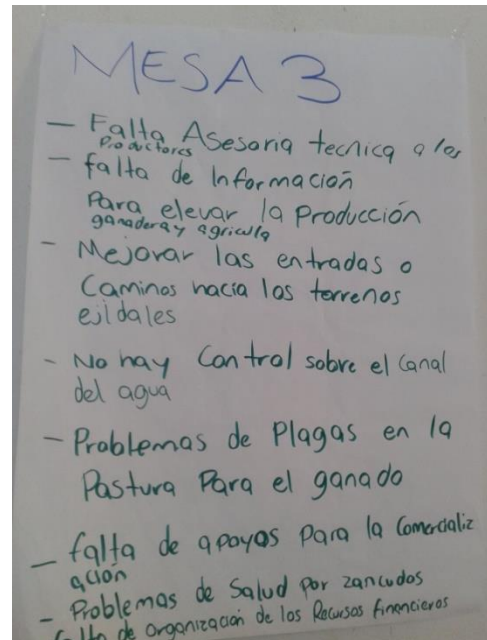 MESA 3
- Falta Asesoria tecnica a los
Productores
- falta de Información
Para elevar la Producción
ganadera y agricula
- Mejorar las entradas o
Caminos hacia los terrenos
ejidales
- No hay Control sobre el Canal
del agua
- Problemas de Plagas en la
Pastura Para el ganado
- falta de apoyos para la Comercializ
ación
- Problemas de Salud por zancudos
falta de organización de los Recursos financieros